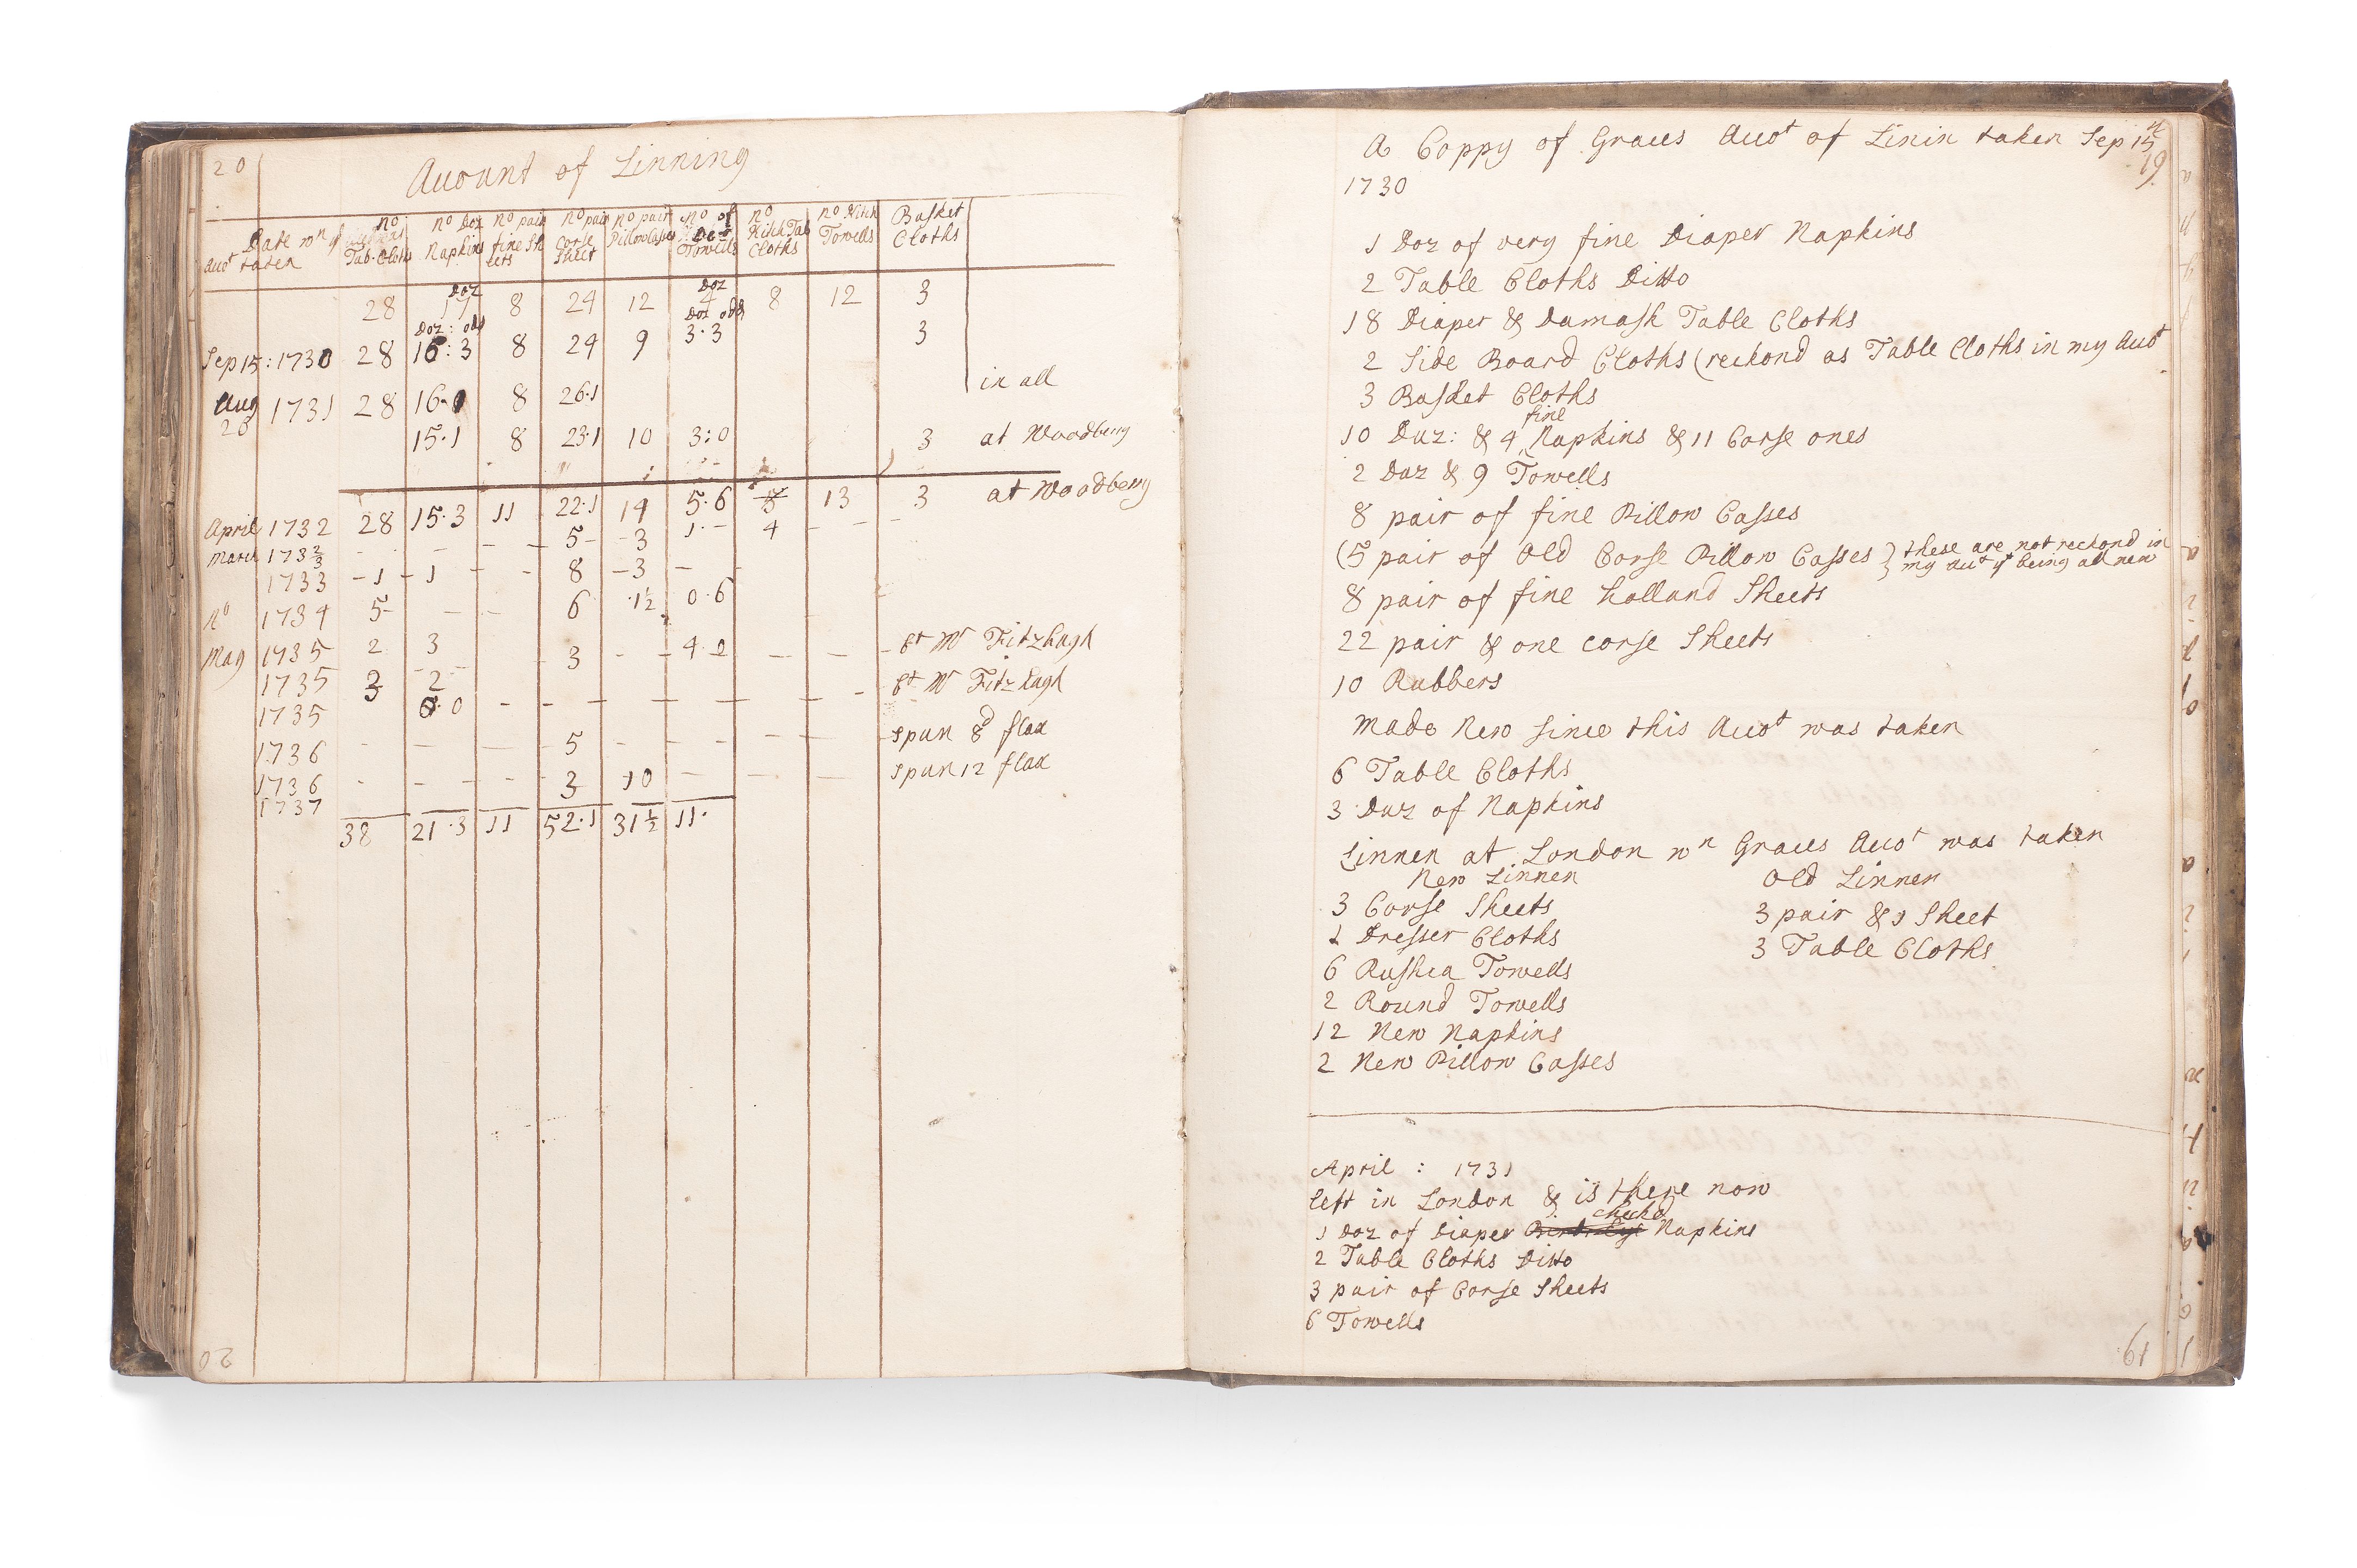 20
Acount of Linning
Date wn ys
Acot taken
no
Tab. Cloths
no Doz
Napkins
no pair
fine Sh
eets
no pair
Corse
Sheet
no pair
Pillow Cases
no of
Doz
Towells
no
Kitch Tab
Cloths
no Kitch
Towells
Basket
Cloths
Doz Doz
28 17 8 24 12 4 8 12 3
Doz: odd Doz odd
Sep 15: 1730 28 16:3 8 24 9 3.3 3
in all
Aug 1731 28 16.0 8 26.1
28 15.1 8 23.1 10 3:0 3 at Woodberry
April 1732 28 15.3 11 22.1 14 5.6 13 3 at Woodberry
March 173 2/3 - - - 5 - 3 1 - 4 - - -
1733 - 1 - 1 - - 8 - 3 - -
no 1734 5 - - - 6 1½ 0.6
May 1735 2 3 3 - - 4.0 - - - Bt Mr Fitzhugh
1735 3 2 Bt Mr Fitzhugh
1735 6.0 - - - - - - -
1736 - - - 5 - - - - - Spun 8d flax
1736 - - - - 3 10 - - - Spun 12 flax
1737
38 21.3 11 52.1 31½ 11.
20
A Coppy of Graces Acot of Linin taken Sep 15th
1730
19
1 Doz of very fine Diaper Napkins
2 Table Cloths Ditto
18 Diaper & Damask Table Cloths
2 Side Board Cloths (reckond as Table Cloths in my Acot
3 Basket Cloths
fine
10 Duz: & 4 Napkins & 11 Corse ones
2 Duz & 9 Towells
8 pair of fine Pillow Casses
(5 pair of Old Corse Pillow Casses } these are not reckond in
my Acot yt being all new
8 pair of fine holland Sheets
22 pair & one corse Sheets
10 Rubbers
Made New since this Acot was taken
6 Table Cloths
3 Duz of Napkins
Linnen at London wn Graces Acot was taken
New Linnen Old Linnen
3 Corse Sheets 3 pair & 1 Sheet
Dresser Cloths 3 Table Cloths
6 Rushea Towells
2 Round Towells
12 New Napkins
2 New Pillow Casses
April : 1731
left in London & is there now
checkd
1 Doz of Diaper Napkins
2 Table Cloths Ditto
3 pair of Corse Sheets
6 Towells
19